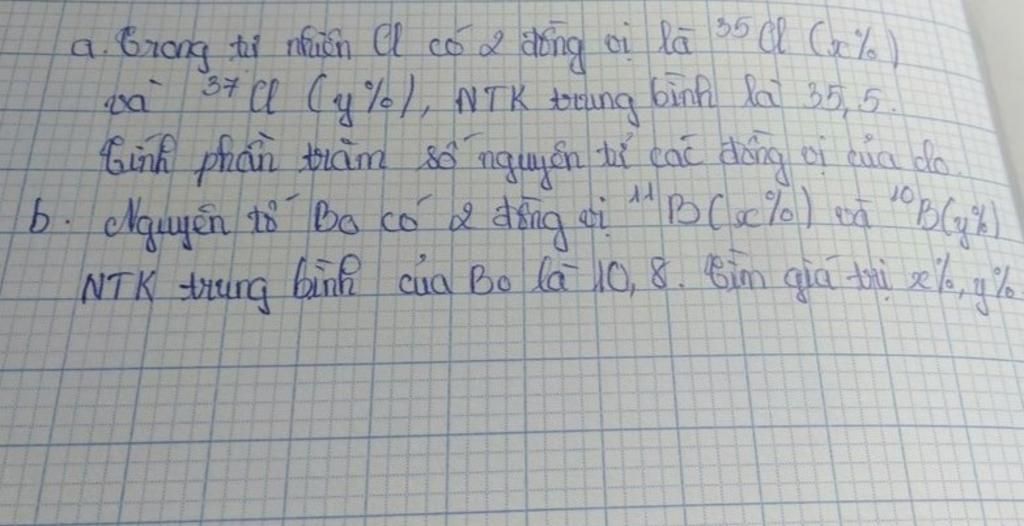 a. Trong tự nhiên Cl có 2 đồng vị là ³⁵Cl (x%)
và ³⁷Cl (y%), NTK trung bình là 35,5.
Tính phần trăm số nguyên tử các đồng vị của clo.
b. Nguyên tố Bo có 2 đồng vị ¹¹B (x%) và ¹⁰B (y%)
NTK trung bình của Bo là 10,8. Tìm giá trị x%, y%